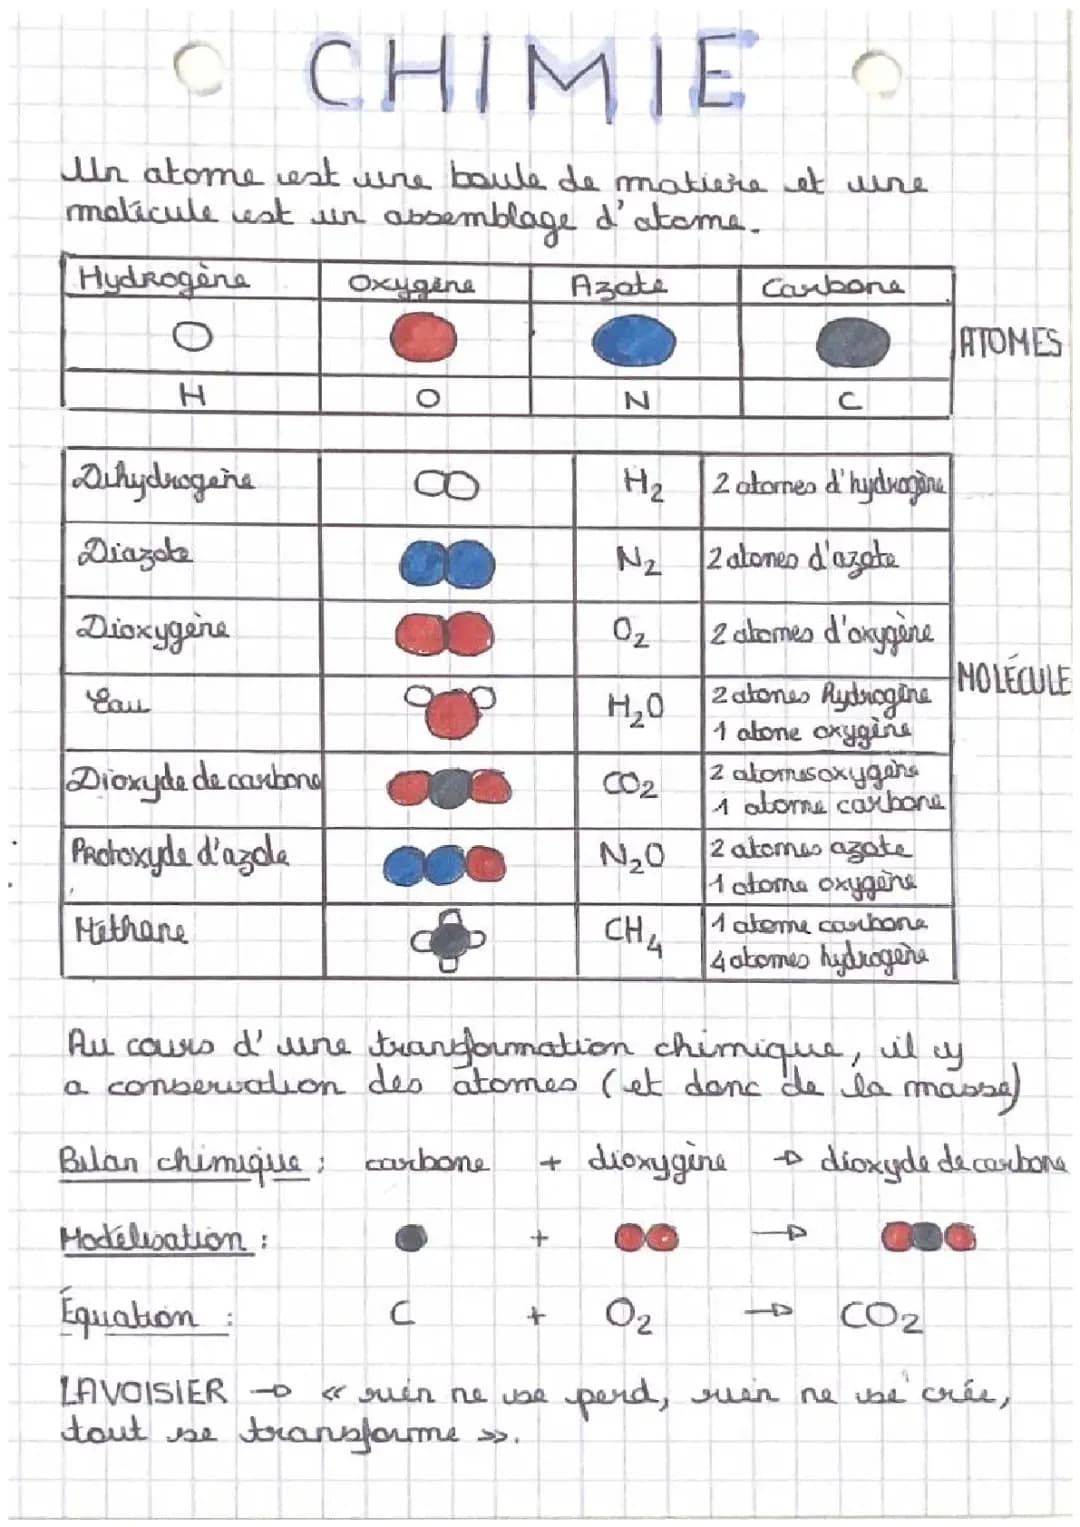 CHIMIE
Un atome est une boule de matière et une
molécule est un assemblage d'atome.
Hydrogène Oxygène Azote Carbone
ATOMES
H O N C
Dihydrogène H₂ 2 atomes d'hydrogène
Diazote N₂ 2 atomes d'azote
Dioxygène O₂ 2 atomes d'oxygène
MOLÉCULE
Eau H₂O 2 atomes hydrogène
1 atome oxygène
Dioxyde de carbone CO₂ 2 atomes oxygène
1 atome carbone
Protoxyde d'azote N₂O 2 atomes azote
1 atome oxygène
Méthane CH₄ 1 atome carbone
4 atomes hydrogène
Au cours d'une transformation chimique, il y
a conservation des atomes (et donc de la masse)
Bilan chimique : carbone + dioxygène → dioxyde de carbone
Modélisation : + →
Équation : C + O₂ → CO₂
LAVOISIER → « rien ne se perd, rien ne se crée,
tout se transforme ».